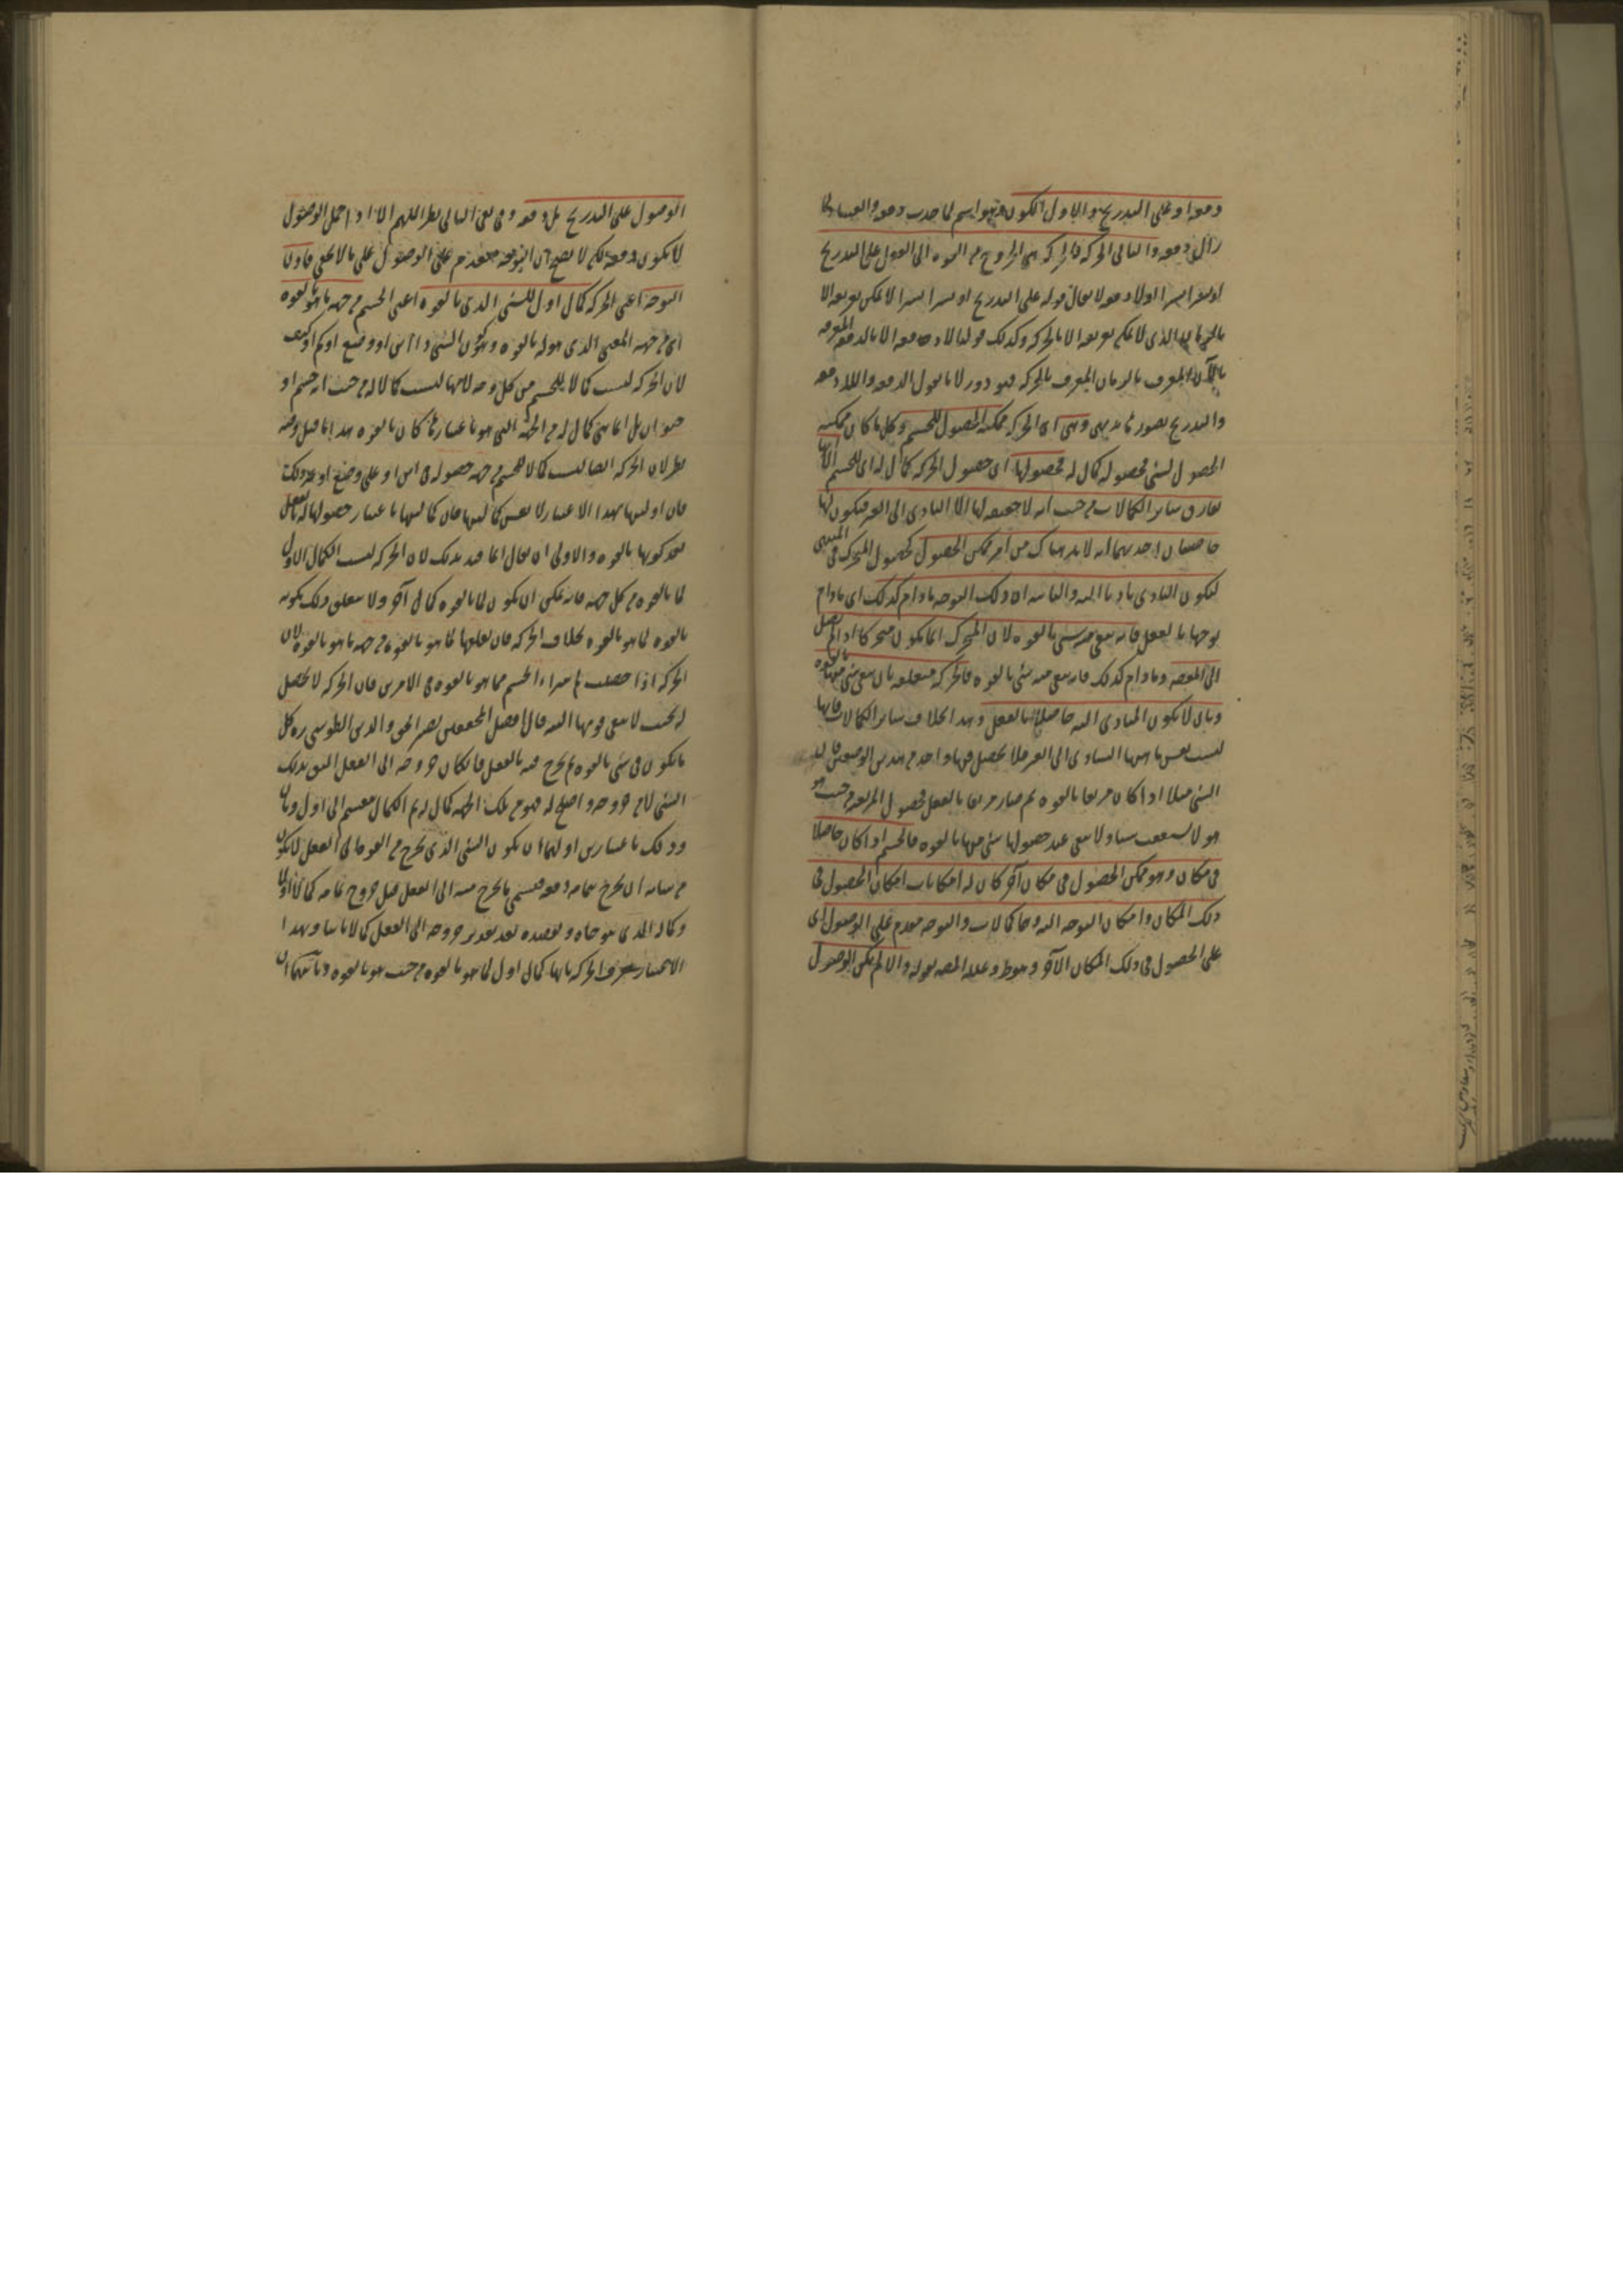 دفعه او على التدريج والاول الكون فهو اسم لما حدث دفعه والفساد لما
زال دفعه والثانى الحركه فالحركه هى الخروج من القوه الى الفعل على التدريج
او يسيرا يسيرا اولا دفعه لا يقال قوله على التدريج او يسيرا يسيرا لا يمكن تعريفه الا
بالزمان الذى لا يمكن تعريفه الا بالحركه وكذلك قولنا لا دفعه الا بالدفعه المعرفه
بالآن المعرف بالزمان المعرف بالحركه فهو دور لانا نقول الدفعه واللادفعه
والتدريج تصورها بديهى وهى اى الحركه ممكنه الحصول للجسم وكل ما كان ممكنه
الحصول لشى فحصوله كمال له فحصولها اى حصول الحركه كمال له اى للجسم الا انها
تفارق سائر الكمالات من حيث انه لا حقيقه لها الا التادى الى الغير فيكون لها
خاصيتان احديهما انه لا بد هناك من امر ممكن الحصول كحصول المتحرك فى المنتهى
ليكون التادى تاديا اليه والثانيه ان ذلك التوجه مادام كذلك اى مادام
توجها بالفعل فانه يبقى منه شى بالقوه لان المتحرك انما يكون متحركا اذا لم يصل
الى المقصد ومادام كذلك فانه يبقى منه شى بالقوه فالحركه متعلقه بان يبقى شى منها بالقوه
وبان لا يكون المتادى اليه حاصلا بالفعل وهذا بخلاف سائر الكمالات فانها
ليست نفس ماهيتها التادى الى الغير فلا يحصل فيها واحد من هذين الوصفين فان
الشى مثلا اذا كان مربعا بالقوه ثم صار مربعا بالفعل فحصول المربعيه من حيث هو
هو لا يستعقب شيا ولا يبقى عند حصولها شى منها بالقوه فالجسم اذا كان حاصلا
فى مكان وهو ممكن الحصول فى مكان آخر كان له امكانان امكان الحصول فى
ذلك المكان وامكان التوجه اليه وهما كمالان والتوجه مقدم على الوصول اى
على الحصول فى ذلك المكان الآخر وهو ظ وعلله المص بقوله والا لم يكن الوصول
الوصول على التدريج بل دفعه وفى نفى التالى نظر اللهم الا اذا حمل الوصول
لا يكون دفعه لكن لا يصح ان التوجه متقدم على الوصول على ما لا يخفى فاذن
التوجه اعنى الحركه كمال اول للشى الذى بالقوه اعنى الجسم من جهه ما هو بالقوه
اى من جهه المعنى الذى هو له بالقوه وهو كون الشى ذا اين او وضع او كم او كيف
لان الحركه ليست كمالا للجسم من كل وجه لانها ليست كمالا له من حيث انه جسم او
حيوان بل انما هى كمال له من الجهه التى هو باعتبارها كان بالقوه هذا ما قيل وفيه
نظر لان الحركه ايضا ليست كمالا للجسم من جهه حصوله فى اين او على وضع او غير ذلك
فان اوليتها بهذا الاعتبار لا نفس كماليتها فان كماليتها باعتبار حصولها له بالفعل
بعد كونها بالقوه والاولى ان يقال انما قيد بذلك لان الحركه ليست الكمال الاول
لما بالقوه من كل جهه فانه يمكن ان يكون لما بالقوه كمال آخر ولا يتعلق ذلك بكونه
بالقوه لما هو بالقوه بخلاف الحركه فان تعلقها بما هو بالقوه من جهه ما هو بالقوه لان
الحركه اذا حصلت لم يتبرا الجسم مما هو بالقوه فى الامرين فان الحركه لا تحصل
له بحيث لا يبقى قوتها البته قال افضل المحققين نصير الحق والدين الطوسى ره كل
ما يكون فى شى بالقوه ثم يخرج منه بالفعل فان كان خروجه الى الفعل اليق بذلك
الشى من لا خروجه واصلح له فهو من تلك الجهه كمال له ثم الكمال ينقسم الى اول وثان
وذلك باعتبارين اولهما ان يكون الشى الذى يخرج من القوه الى الفعل لا يكون
من شانه ان يخرج بتمامه دفعه فيسمى ما يخرج منه الى الفعل قبل خروج تمامه كمالا اولا
وكماله الذى يتوخاه ويقصده بعد تقدير خروجه الى الفعل كمالا ثانيا وبهذا
الاعتبار يعرف الحركه بانها كمال اول لما هو بالقوه من حيث هو بالقوه وثانيهما ان